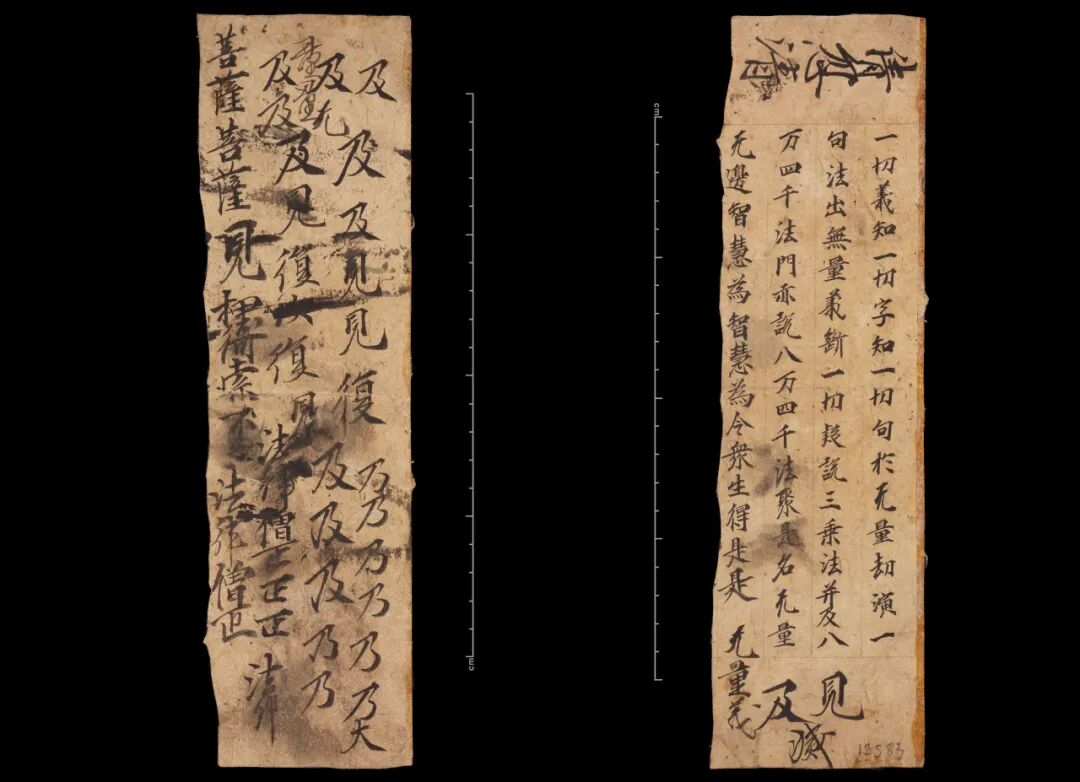 及及及見見復乃乃乃乃乃乃大
及无及及及乃乃
及及及見復次復見法律僧正正正法律
菩薩菩薩見索法律僧正
一切義知一切字知一切句於无量劫演一
句法出無量義斷一切疑說三乘法并及八
万四千法門亦說八万四千法聚是名无量
无邊智慧為智慧為令衆生得是是 无量義
見
及
12583
cm
cm